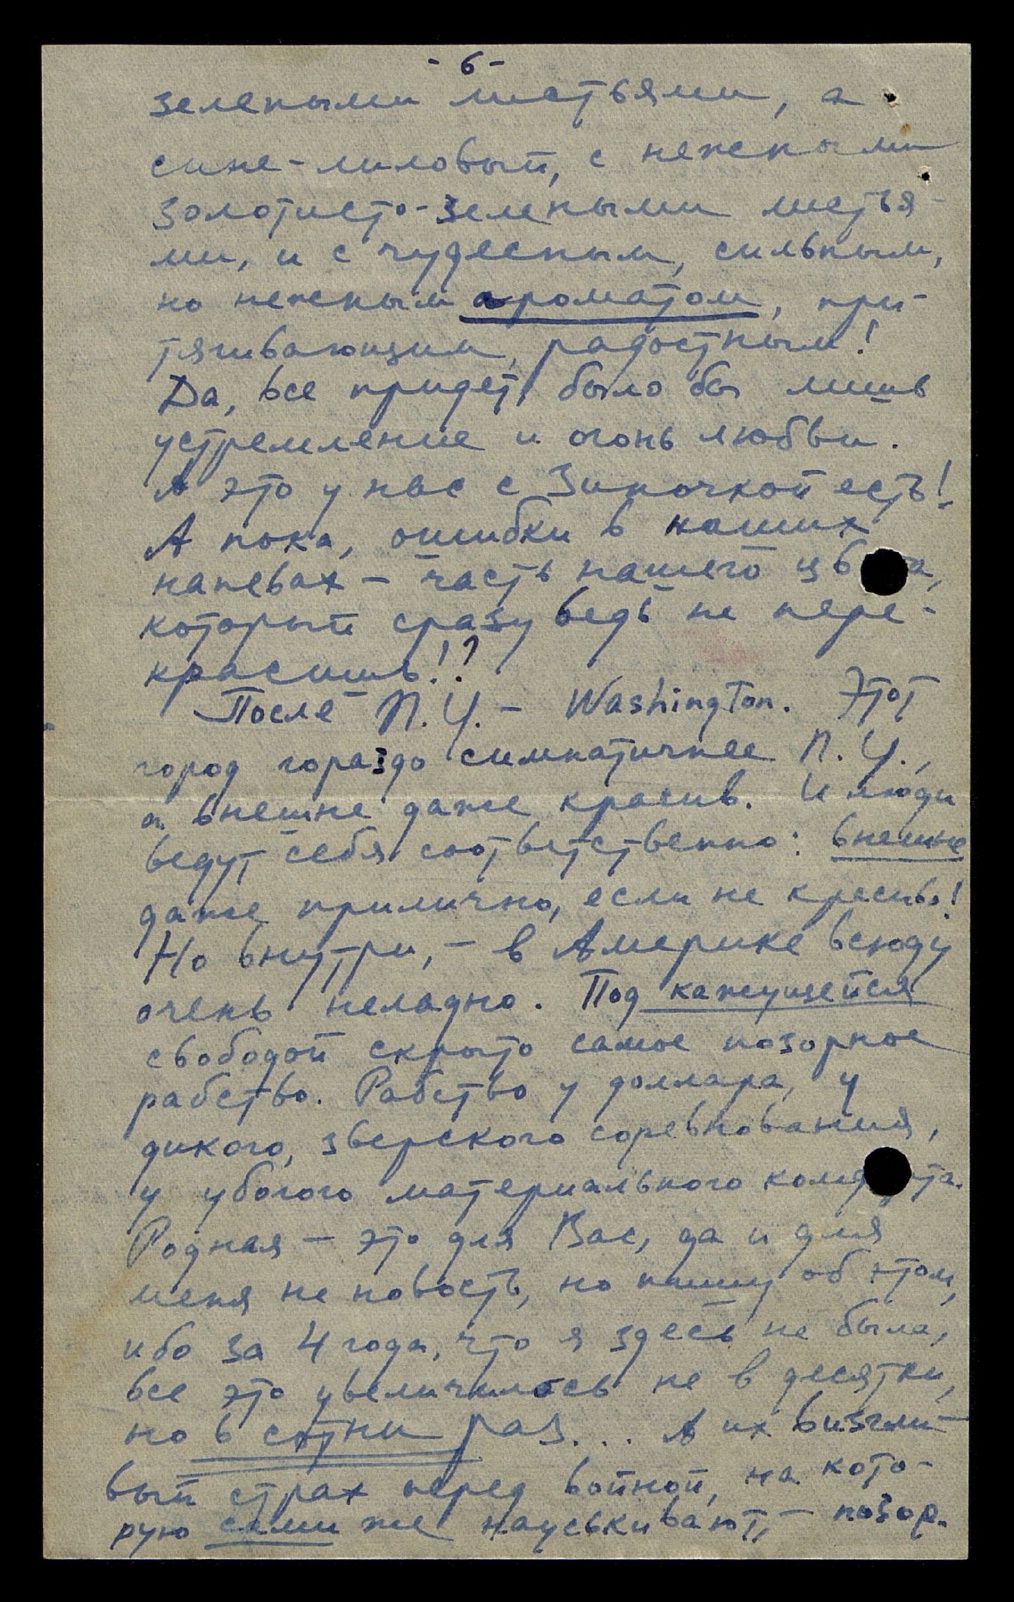 -6-
зелеными листьями, а
сине-лиловый, с нежными
золотисто-зелеными листья-
ми, и с чудесным, сильным,
но нежным ароматом, при-
тягивающим, радостным!
Да, все придет, было бы лишь
устремление и огонь любви.
А это у нас с Зиночкой есть!
А пока, ошибки в наших
напевах – часть нашего цв а,
который сразу ведь не пере-
красишь!?
После N.Y. – Washington. Этот
город гораздо симпатичнее N.Y.,
и внешне даже красив. И люди
ведут себя соответственно: внешне
даже прилично, если не красиво!
Но внутри, – в Америке всюду
очень неладно. Под кажущейся
свободой скрыто самое позорное
рабство. Рабство у доллара, у
дикого, зверского соревнования,
у убогого материального ком та.
Родная – это для Вас, да и для
меня не новость, но пишу об этом,
ибо за 4 года, что я здесь не была,
все это увеличилось не в десятки,
но в сотни раз... А их визгли-
вый страх перед войной, на кото-
рую сами же науськивают, – позор.